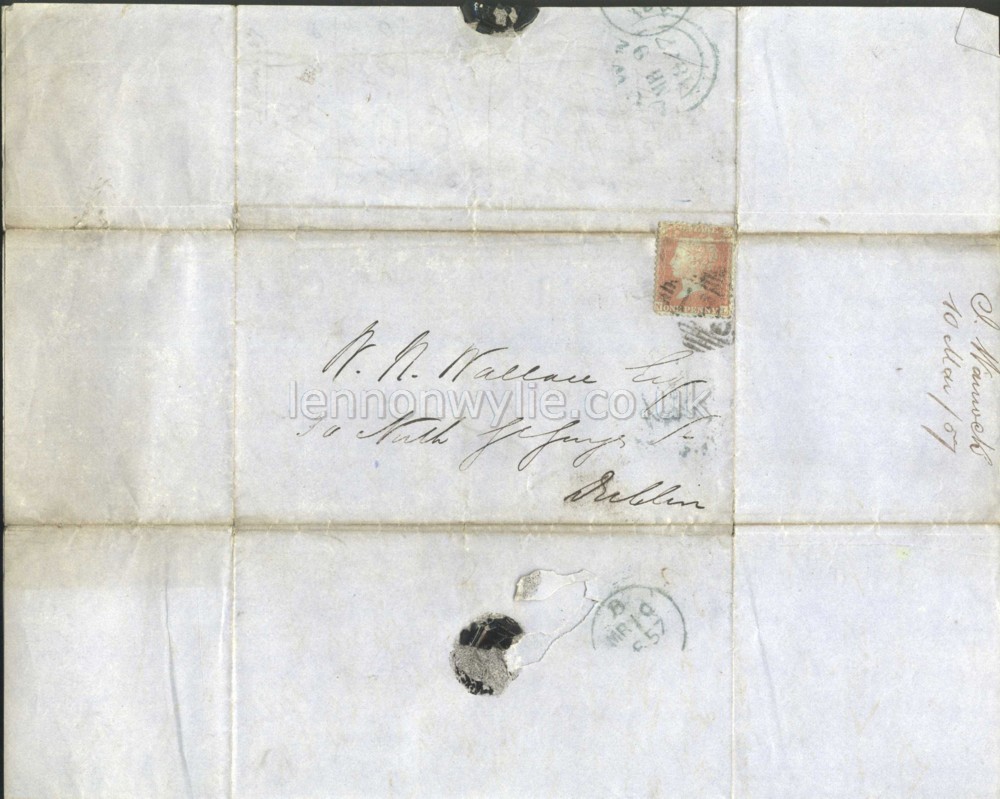 1857
MR 9
ONE PENNY
W. N. Wallace Esq
lennonwylie.co.uk
30 North Gt Georges St
Dublin
B
MR 10
57
10 Mar / 57